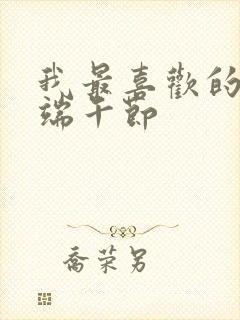 我最喜歡的
端午節
喬荣另